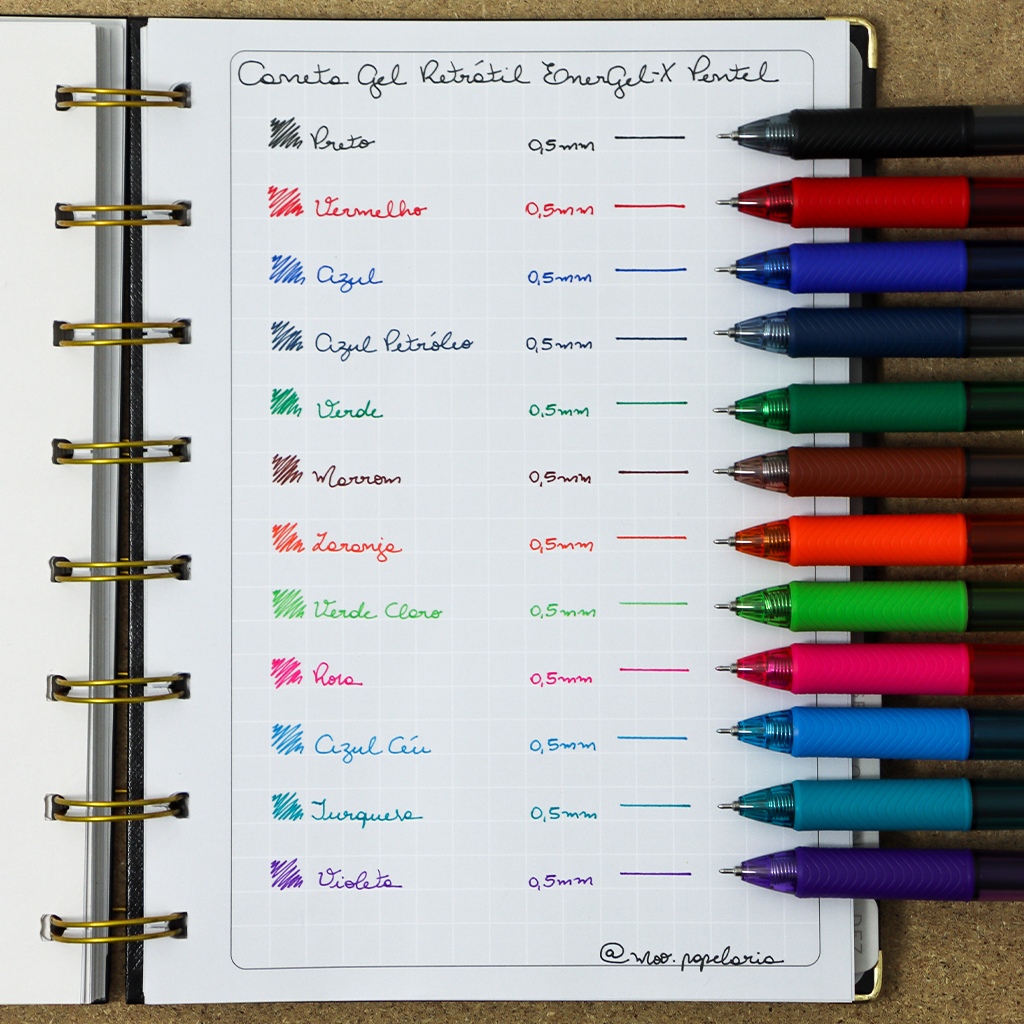 Caneta Gel Retrátil EnerGel-X Pentel
Preto 0,5mm
Vermelho 0,5mm
Azul 0,5mm
Azul Petróleo 0,5mm
Verde 0,5mm
Marrom 0,5mm
Laranja 0,5mm
Verde Claro 0,5mm
Rosa 0,5mm
Azul Céu 0,5mm
Turquesa 0,5mm
Violeta 0,5mm
@moo.papelaria
DEZ